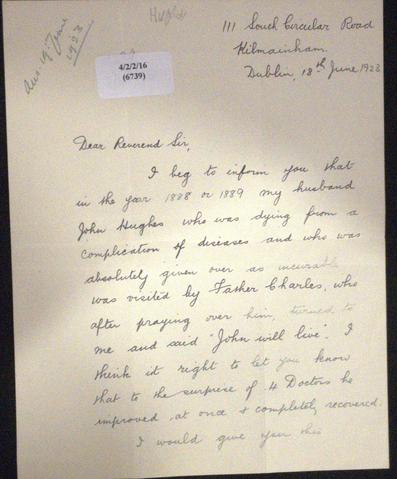 Hughes
Ans. 19th June
1923
4/2/2/16
(6739)
111 South Circular Road
Kilmainham.
Dublin, 18th June 1923
Dear Reverend Sir,
I beg to inform you that
in the year 1888 or 1889 my husband
John Hughes who was dying from a
complication of diseases and who was
absolutely given over as incurable
was visited by Father Charles, who
after praying over him, turned to
me and said "John will live". I
think it right to let you know
that to the surprise of 4 Doctors he
improved at once & completely recovered.
I would give you this